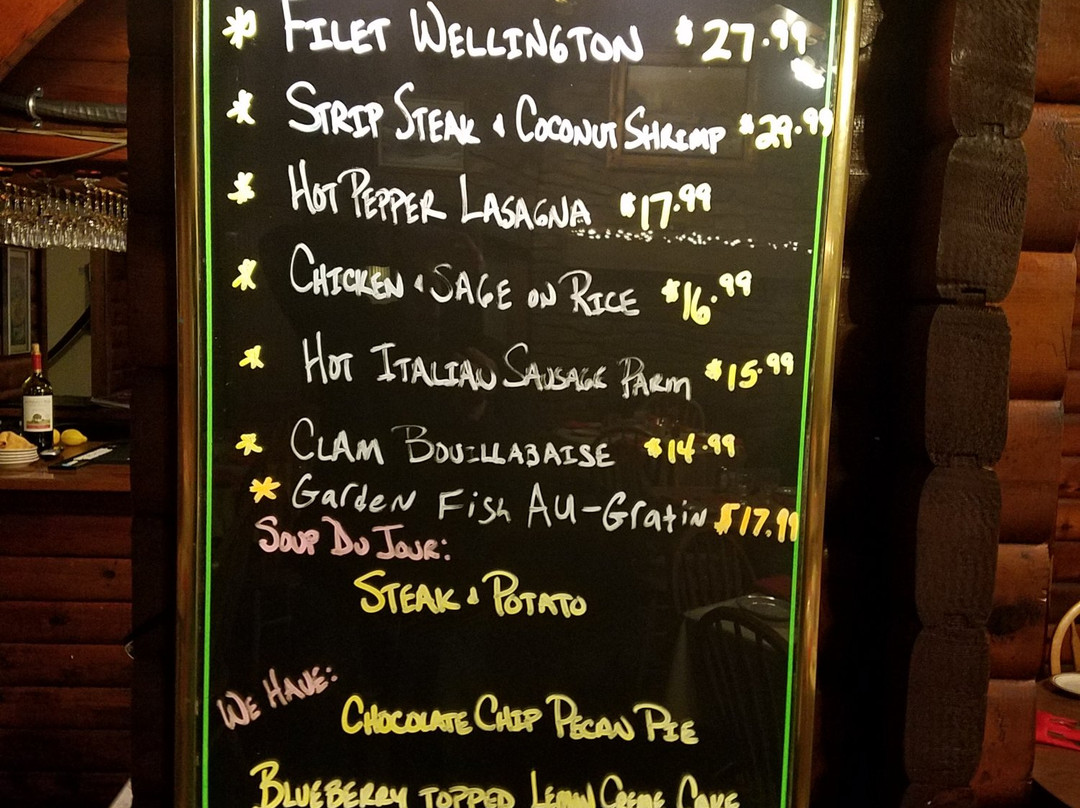 * FILET WELLINGTON $27.99
* STRIP STEAK & COCONUT SHRIMP $29.99
* HOT PEPPER LASAGNA $17.99
* CHICKEN & SAGE ON RICE $16.99
* HOT ITALIAN SAUSAGE PARM $15.99
* CLAM BOUILLABAISE $14.99
* Garden Fish AU-Gratin $17.99
SOUP DU JOUR:
STEAK & POTATO
WE HAVE:
CHOCOLATE CHIP PECAN PIE
BLUEBERRY TOPPED LEMON CREME CAKE